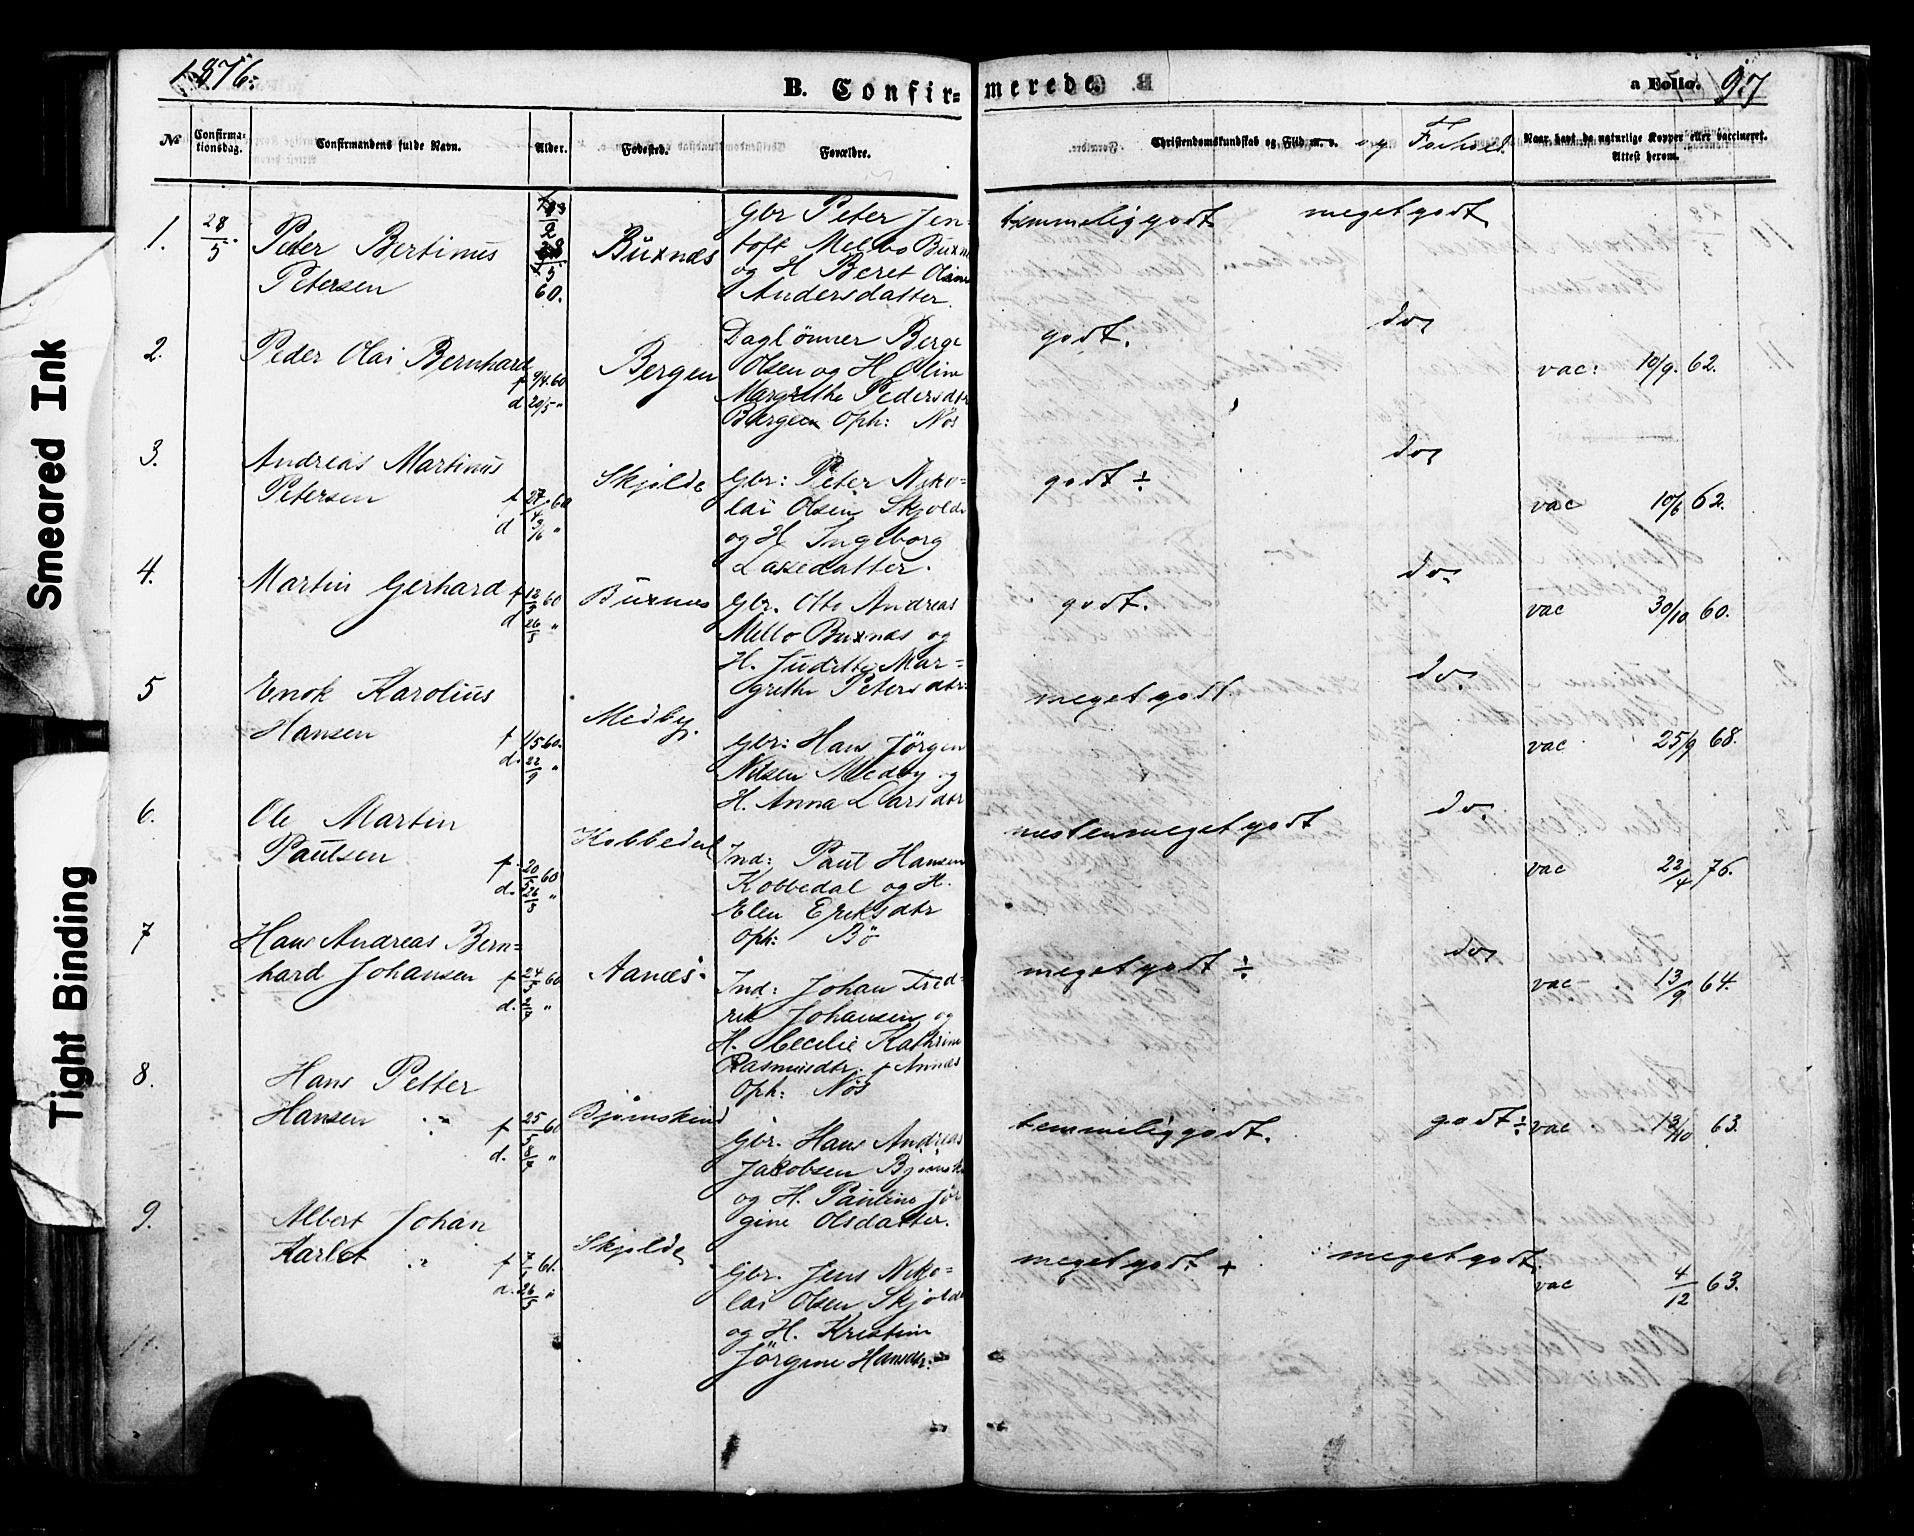 Smeared Ink
Tight Binding
1876.
B. Confir=
merede.
a Folio. 97
No
Confirma-
tionsdag.
Confirmandens fulde Navn.
Alder.
Fødested.
Forældre.
Christendomskundskab og Flid m. v. og Forhold.
Naar havt de naturlige Kopper eller vaccineret.
Attest herom.
1. 28/5. Peter Bertinus
Petersen
60.
Buxnæs
Gbr Peter Jen-
toft Melbo Buxnæs
og H Beret Oline
Andersdatter.
temmelig godt.
meget godt
2. Peder Olai Bernhard
f 9/4.60
d 20/5 "
Bergen
Daglönner Berge
Olsen og H. Oline
Margrethe Pedersdtr
Bergen Oph: Nös
godt.
do
vac: 10/9. 62.
3. Andreas Martinus
Petersen
f 27/4 60
d 3/6 "
Skjolde
Gbr: Peter Niko-
lai Olsen Skjolde
og H Ingeborg
Larsdatter.
godt ÷
do
vac 10/6 62.
4. Martin Gerhard
f 12/3 60
d 26/5 "
Buxnes
Gbr. Otto Andreas
Mello Buxnæs og
H. Judithe Mar=
grethe Petersdtr.
godt.
do
vac 30/10 60.
5 Enok Karolius
Hansen
f 1/5 60.
d. 22/9 "
Medby.
Gbr: Hans Jörgen
Nilsen Medby og
H. Anna Larsdtr
meget godt
do
vac 25/9 68.
6. Ole Martin
Paulsen
f. 20/5 60
d. 26/5 "
Kobbedal
Ind: Paul Hansen
Kobbedal og H.
Elen Eriksdtr
Oph: Bö
næsten meget godt
do
vac 22/4 76.
7 Hans Andreas Bern=
hard Johansen
f 24/5 60
d. "
Aanes.
Ind: Johan Fred-
rik Johansen og
H. Cecilie Kathrine
Rasmusdtr. f Annæs
Oph: Nös
meget godt ÷
do
vac 13/9 64.
8. Hans Petter
Hansen "
f 25/5 60
d. "
Björnskind
Gbr. Hans Andreas
Jakobsen Björnsk
og H. Pauline Jör
gine Olsdatter.
temmelig godt.
godt ÷
vac 13/10 63.
9. Albert Johan
Karlot "
f 61.
d. 26/5 "
Skjolde
Gbr. Jens Niko=
lai Olsen Skjolde
og H. Kristine
Jörgine Hansdtr.
meget godt +
meget godt.
vac 4/12 63.